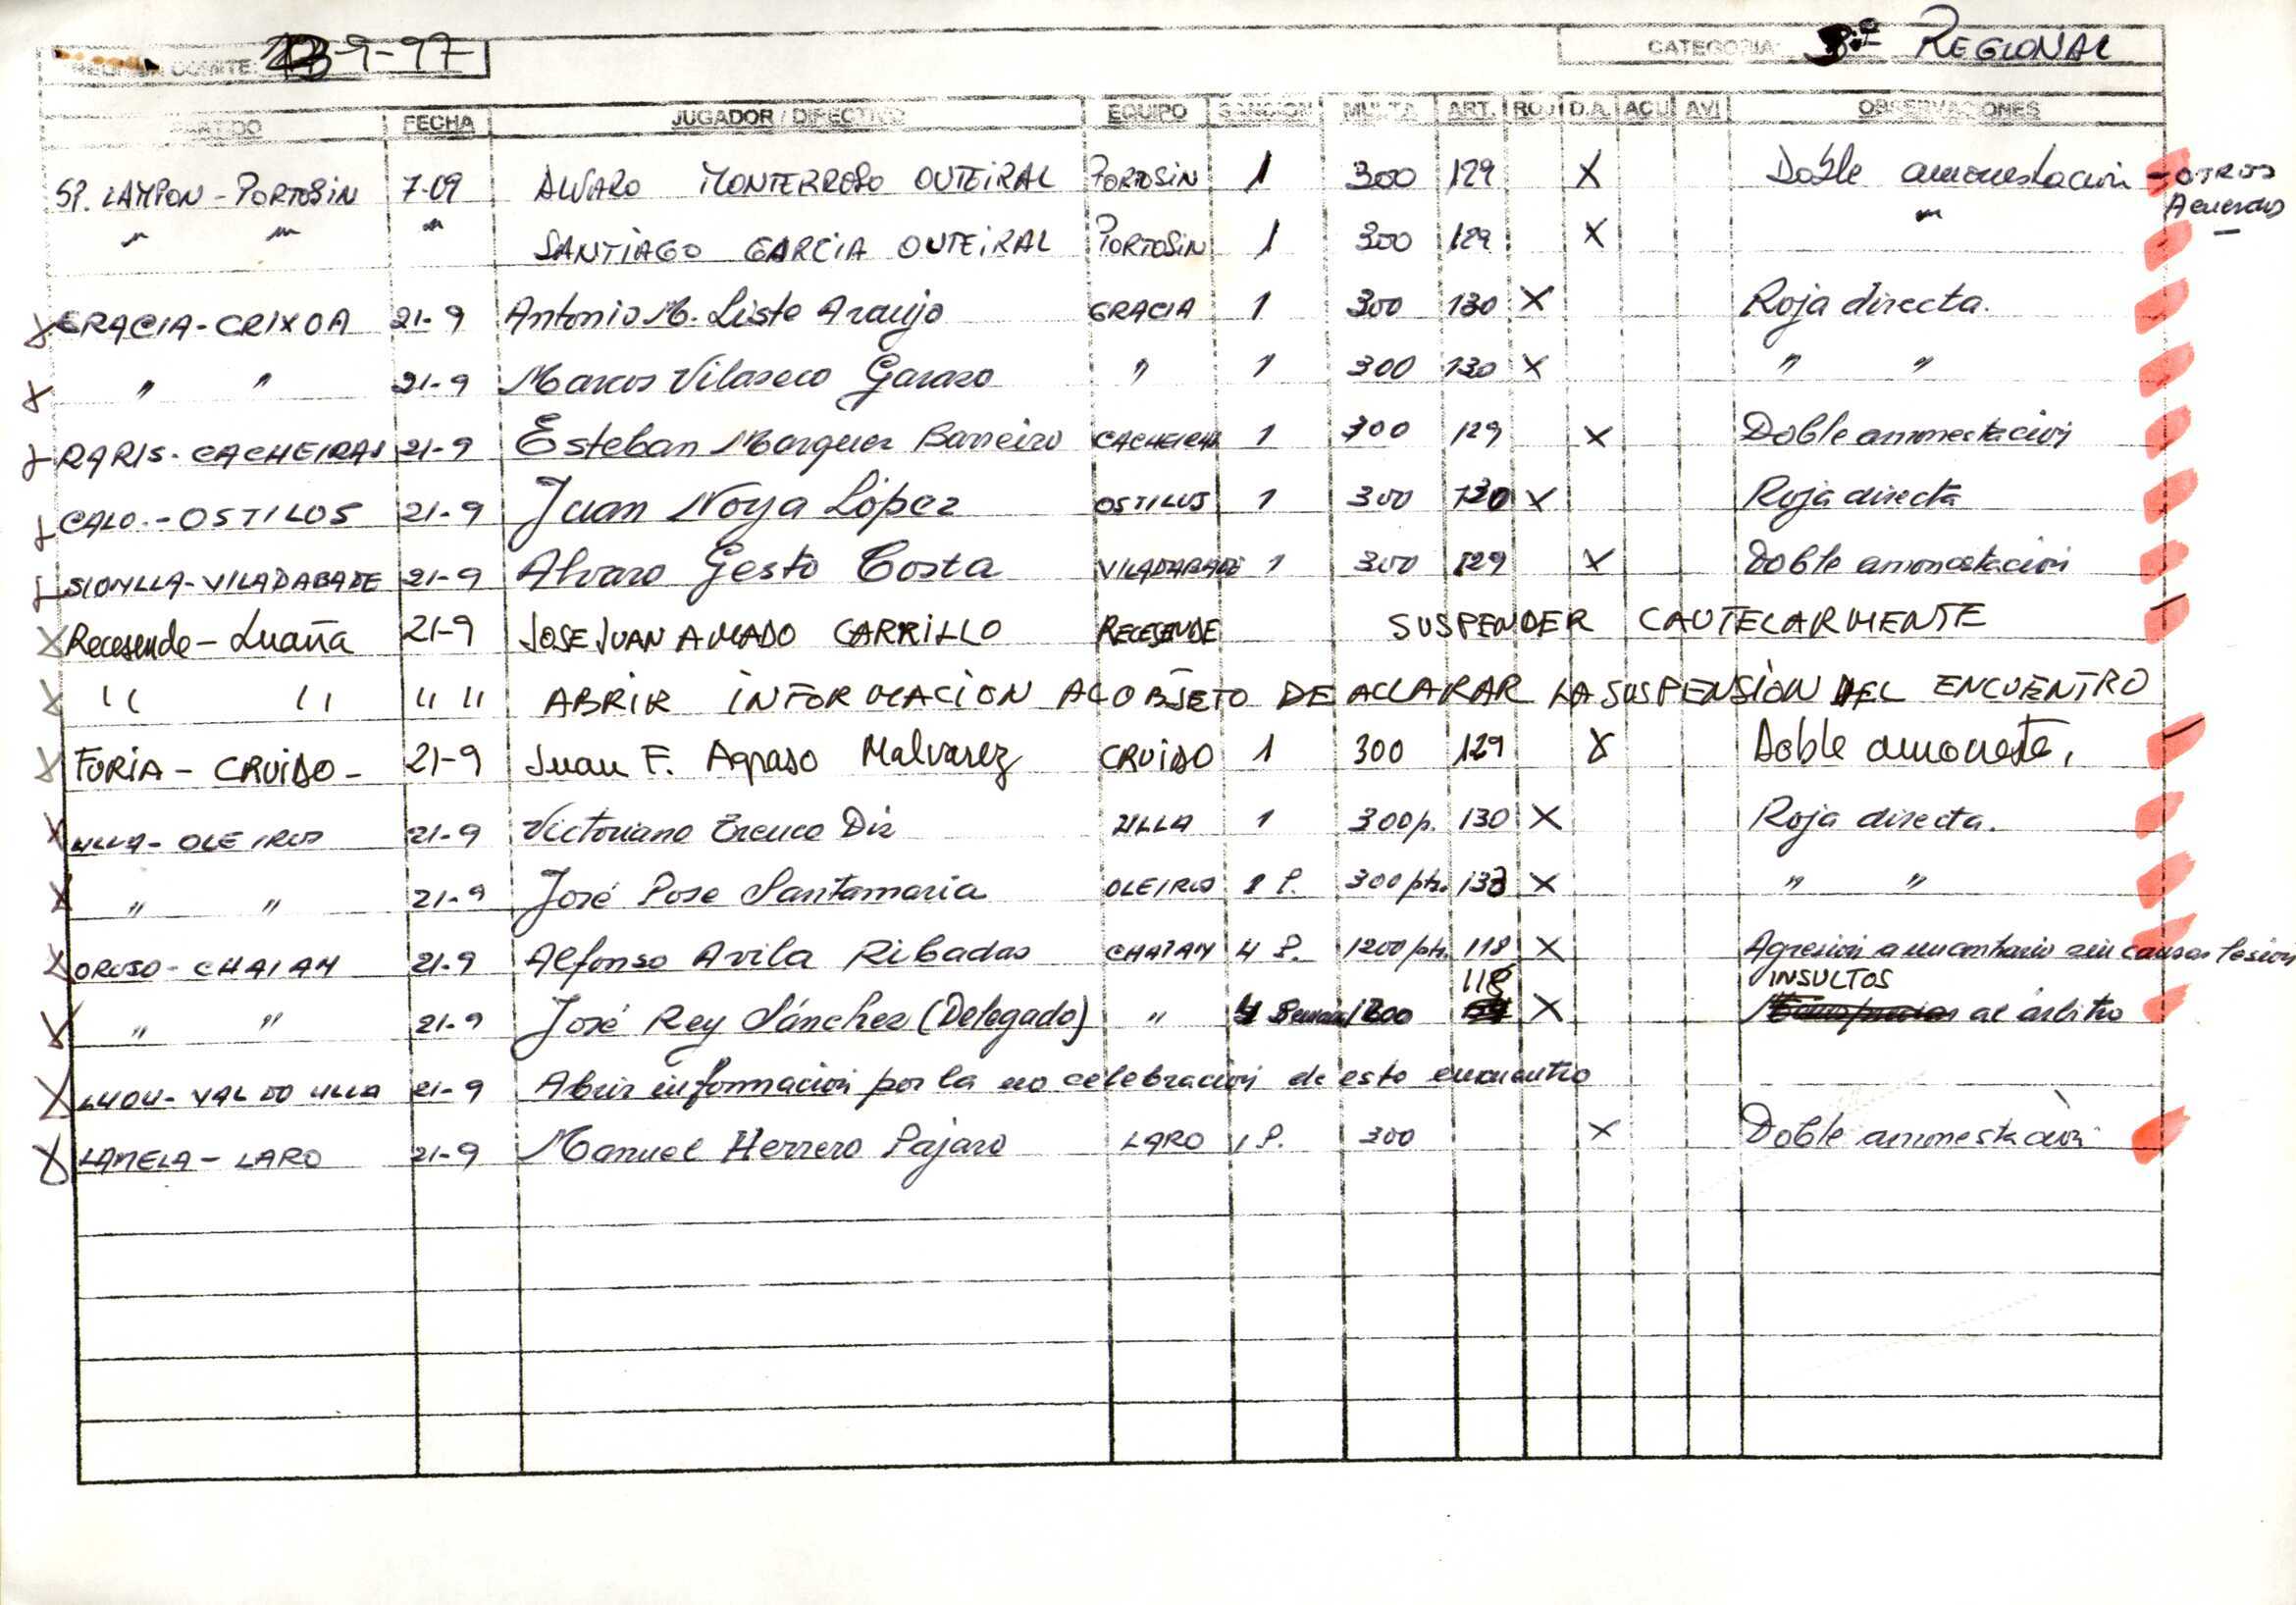 REUNION COMITE: 23-9-97 CATEGORIA: 3ª REGIONAL
PARTIDO FECHA JUGADOR / DIRECTIVO EQUIPO SANCION MULTA ART. ROJ D.A. ACU AVI OBSERVACIONES
SP. LAMPON - PORTOSIN 7-09 ALVARO MONTERROSO OUTEIRAL PORTOSIN 1 300 129 X Doble amonestacion - OTROS Acuerdos
" " " SANTIAGO GARCIA OUTEIRAL PORTOSIN 1 300 129 X "
X GRACIA - CRIXOA 21-9 Antonio M. Liste Araujo GRACIA 1 300 130 X Roja directa.
X " " 21-9 Marcos Vilaseco Garazo " 1 300 130 X " "
X RARIS - CACHEIRAS 21-9 Esteban Marquez Barreiro CACHEIRAS 1 300 129 X Doble amonestación
X CALO. - OSTILOS 21-9 Juan Noya López OSTILOS 1 300 130 X Roja directa
X SIONLLA - VILADABADE 21-9 Alvaro Gesto Costa VILADABADE 1 300 129 X Doble amonestación
X Recesende - Luaña 21-9 JOSE JUAN AMADO CARRILLO RECESENDE SUSPENDER CAUTELARMENTE
X " " " " ABRIR INFORMACION AL OBJETO DE ACLARAR LA SUSPENSIÓN DEL ENCUENTRO
X FORIA - CRUIDO - 21-9 Juan F. Agraso Malvarez CRUIDO 1 300 129 X Doble amonesta.
X ULLA - OLEIROS 21-9 Victoriano Diz ULLA 1 300 p. 130 X Roja directa.
X " " 21-9 José Pose Santamaria OLEIROS 1 P. 300 pts. 130 X " "
X OROSO - CHAIAN 21-9 Alfonso Avila Ribadas CHAIAN 4 P. 1200 pts. 118 X Agresión a un contrario sin causar lesión
X " " 21-9 José Rey Sánchez (Delegado) " 4 1200 118 X INSULTOS al árbitro
X LUOU - VAL DO ULLA 21-9 Abrir información por la no celebración de este encuentro
X LAMELA - LARO 21-9 Manuel Herrero Pajaro LARO 1 P. 300 X Doble amonestación